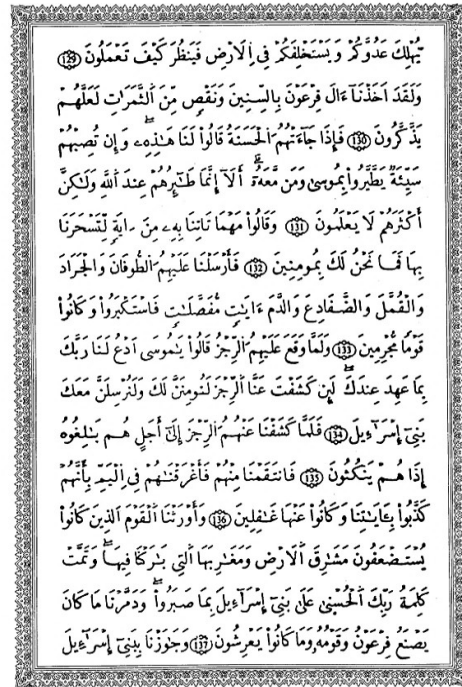 يُّهْلِكَ عَدُوَّكُمْ وَيَسْتَخْلِفَكُمْ فِي اِ۬لَارْضِ فَيَنظُرَ كَيْفَ تَعْمَلُونَ 129
وَلَقَدَ اَخَذْنَآ ءَالَ فِرْعَوْنَ بِالسِّنِينَ وَنَقْصٖ مِّنَ اَ۬لثَّمَرَٰتِ لَعَلَّهُمْ
يَذَّكَّرُونَ 130 فَإِذَا جَآءَتْهُمُ اُ۬لْحَسَنَةُ قَالُواْ لَنَا هَٰذِهِۦ وَإِن تُصِبْهُمْ
سَيِّئَةٞ يَطَّيَّرُواْ بِمُوسَىٰ وَمَن مَّعَهُۥٓ أَلَآ إِنَّمَا طَٰٓئِرُهُمْ عِندَ اَ۬للَّهِ وَلَٰكِنَّ
أَكْثَرَهُمْ لَا يَعْلَمُونَ 131 وَقَالُواْ مَهْمَا تَاتِنَا بِهِۦ مِنَ ـاٰيَةٖ لِّتَسْحَرَنَا
بِهَا فَمَا نَحْنُ لَكَ بِمُومِنِينَ 132 فَأَرْسَلْنَا عَلَيْهِمُ اُ۬لطُّوفَانَ وَالْجَرَادَ
وَالْقُمَّلَ وَالضَّفَادِعَ وَالدَّمَ ءَايَٰتٖ مُّفَصَّلَٰتٖ فَاسْتَكْبَرُواْ وَكَانُواْ
قَوْماٗ مُّجْرِمِينَ 133 وَلَمَّا وَقَعَ عَلَيْهِمُ اُ۬لرِّجْزُ قَالُواْ يَٰمُوسَى اَ۟دْعُ لَنَا رَبَّكَ
بِمَا عَهِدَ عِندَكَ لَئِن كَشَفْتَ عَنَّا اَ۬لرِّجْزَ لَنُومِنَنَّ لَكَ وَلَنُرْسِلَنَّ مَعَكَ
بَنِيٓ إِسْرَآءِيلَ 134 فَلَمَّا كَشَفْنَا عَنْهُمُ اُ۬لرِّجْزَ إِلَىٰٓ أَجَلٍ هُم بَٰلِغُوهُ
إِذَا هُمْ يَنكُثُونَ 135 فَانتَقَمْنَا مِنْهُمْ فَأَغْرَقْنَٰهُمْ فِي اِ۬لْيَمِّ بِأَنَّهُمْ
كَذَّبُواْ بِـَٔايَٰتِنَا وَكَانُواْ عَنْهَا غَٰفِلِينَ 136 وَأَوْرَثْنَا اَ۬لْقَوْمَ اَ۬لذِينَ كَانُواْ
يُسْتَضْعَفُونَ مَشَٰرِقَ اَ۬لَارْضِ وَمَغَٰرِبَهَا اَ۬لتِي بَٰرَكْنَا فِيهَا وَتَمَّتْ
كَلِمَتُ رَبِّكَ اَ۬لْحُسْنَىٰ عَلَىٰ بَنِيٓ إِسْرَآءِيلَ بِمَا صَبَرُواْ وَدَمَّرْنَا مَا كَانَ
يَصْنَعُ فِرْعَوْنُ وَقَوْمُهُۥ وَمَا كَانُواْ يَعْرِشُونَ 137 وَجَٰوَزْنَا بِبَنِيٓ إِسْرَآءِيلَ